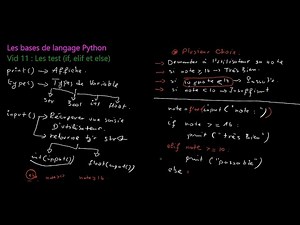 Les bases de langage Python
Vid 11 : Les test (if, elif et else)
print() → Affiche.
type() → Types de Variable
Str Bool int float
input() → Récupérer une saisie
D'utilisateur.
→ retourne type str
int(input()) float(input())
note
* Plusieurs Choix.
→ Demander à l'utilisateur sa note
→ si note ≥ 14 → Très Bien
→ si
→ si note < 10 → Insuffisant
note = float(input("note: "))
if note >= 14:
print("très Bien")
elif note >= 10:
print("passable")
else: